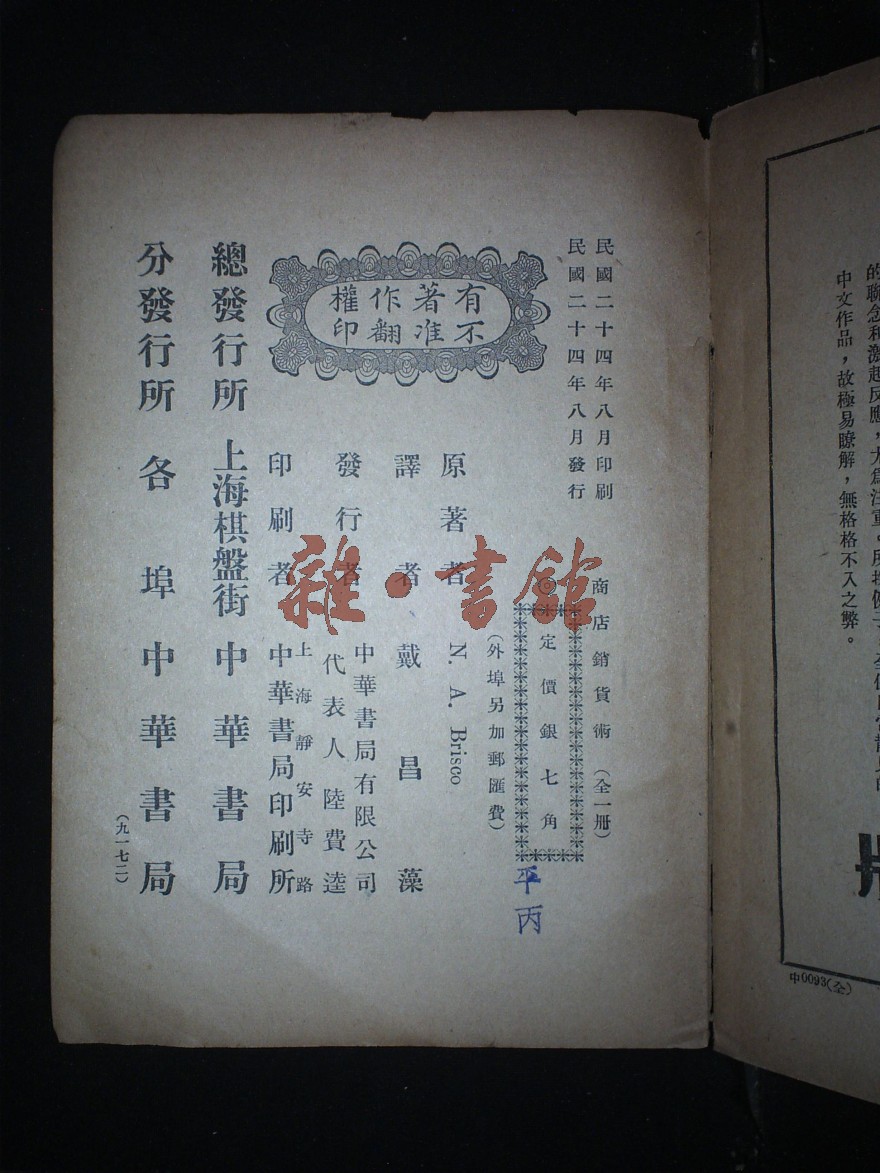 的聯念和激起反應，尤爲注重。所
中文作品，故極易瞭解，無格格不入之弊。
中0093(全)
民國二十四年八月印刷
民國二十四年八月發行
商店銷貨術（全一冊）
◎定價銀七角
（外埠另加郵匯費）
平丙
有著作權
不准翻印
原著者 N. A. Brisco
譯者 戴昌藻
發行者 中華書局有限公司
代表人 陸費逵
印刷者 上海靜安寺路
中華書局印刷所
總發行所 上海棋盤街 中華書局
分發行所 各埠 中華書局
（九一七二）
雜·書館